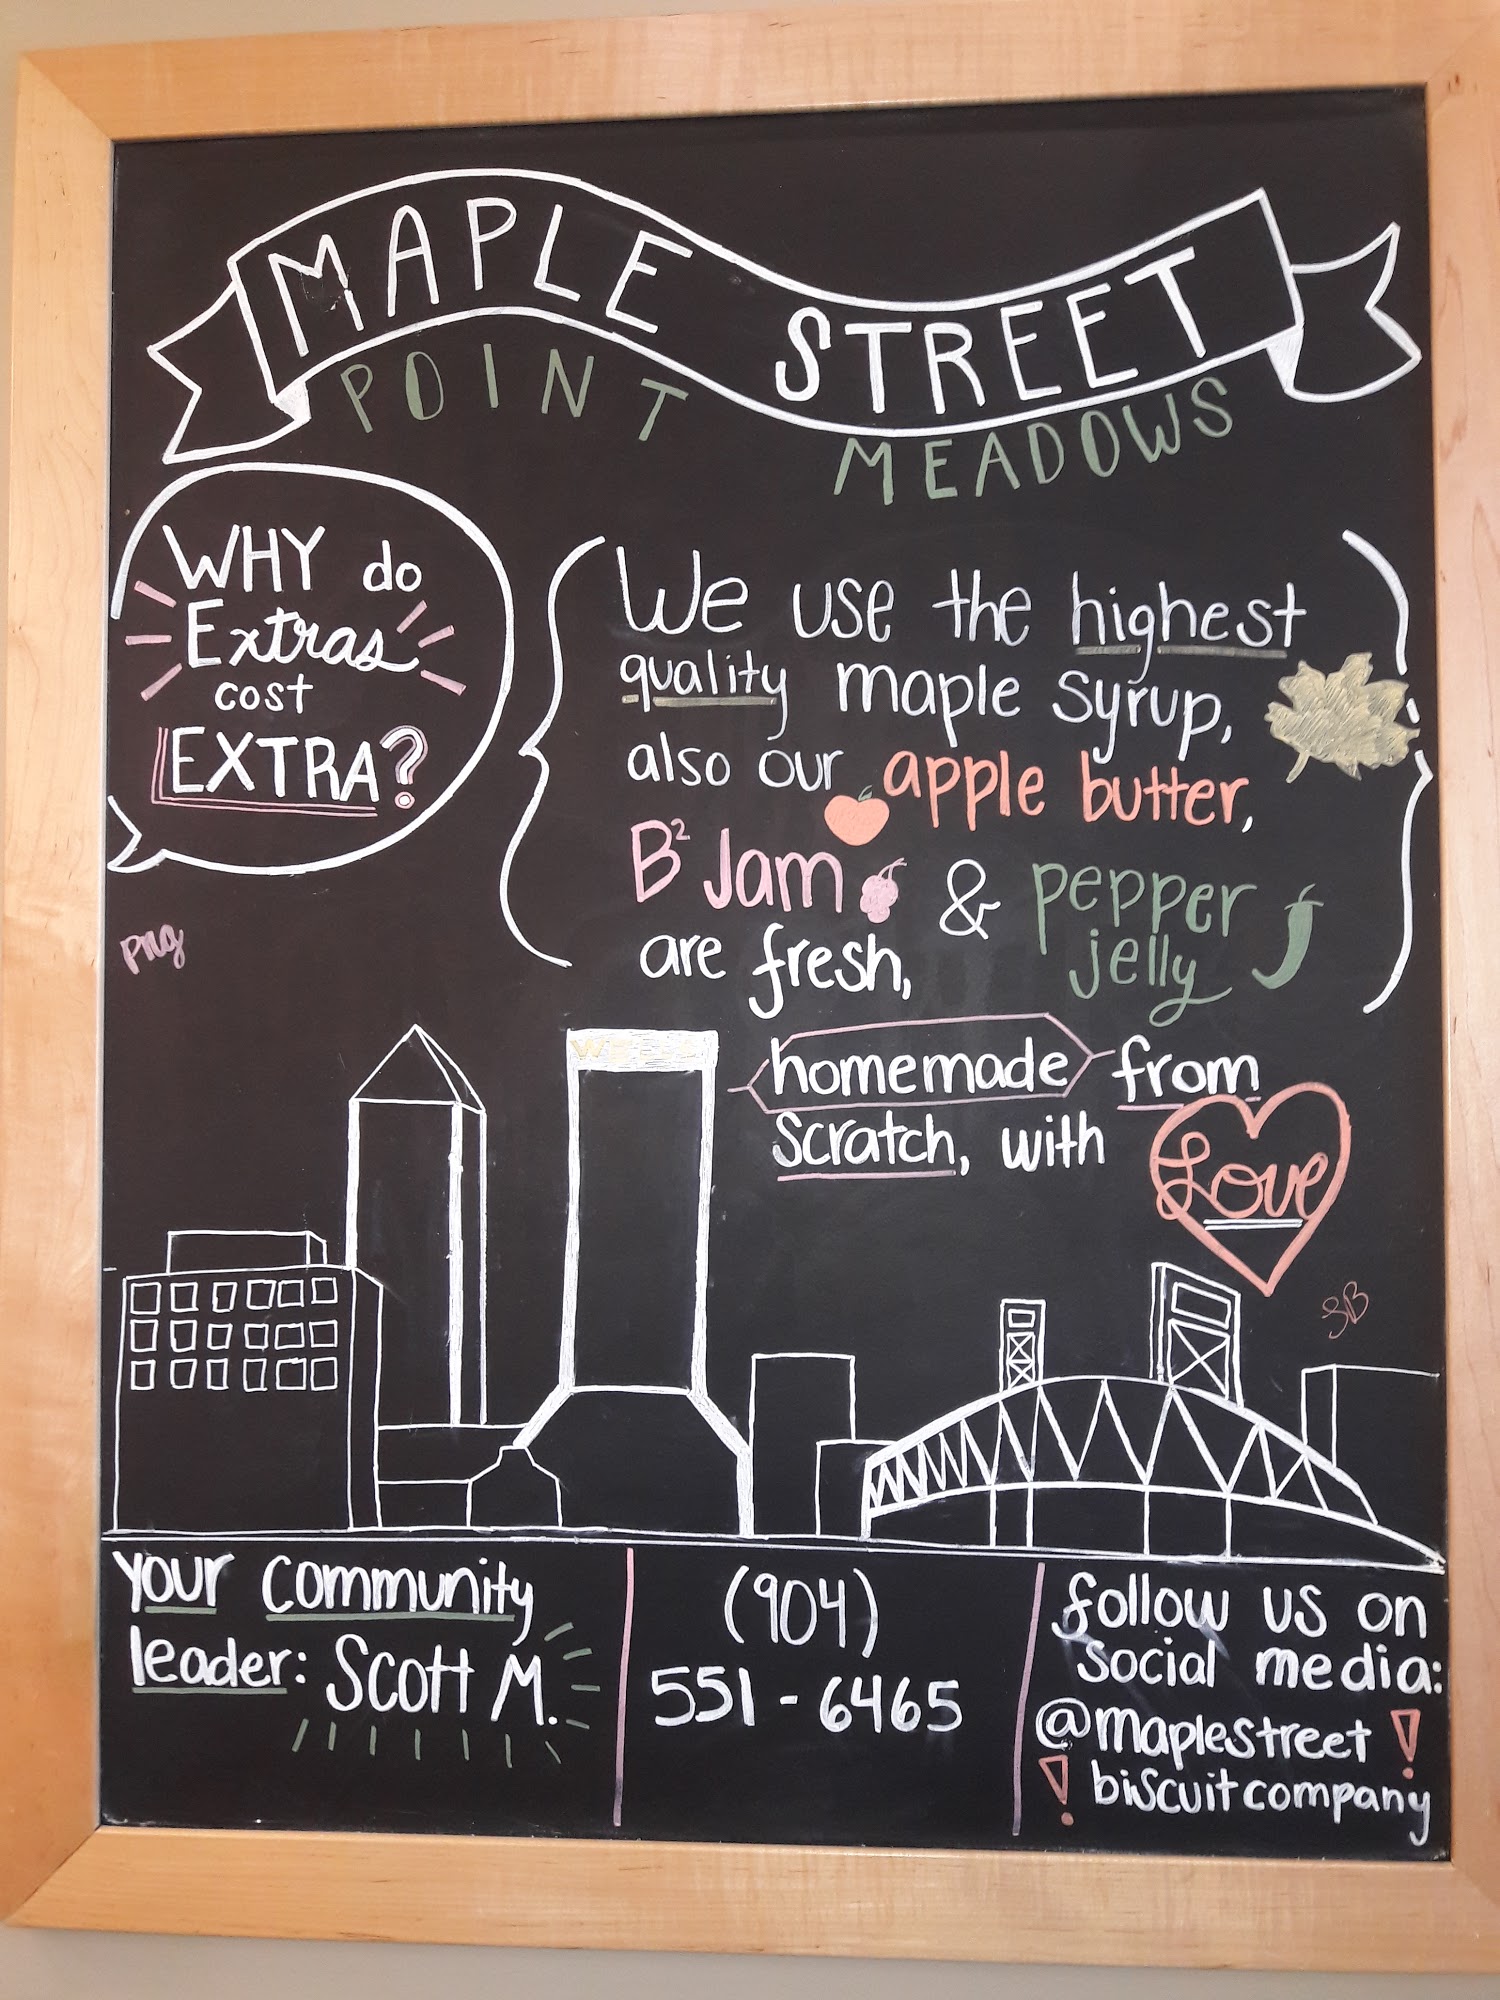 MAPLE STREET
POINT MEADOWS
WHY do
Extras
cost
EXTRA?
We use the highest
quality maple syrup,
also our apple butter,
B² Jam & pepper
jelly
are fresh,
homemade from
Scratch, with
Love
png
SB
your community
leader: Scott M.
(904)
551-6465
follow us on
Social media:
@maplestreet
biscuitcompany